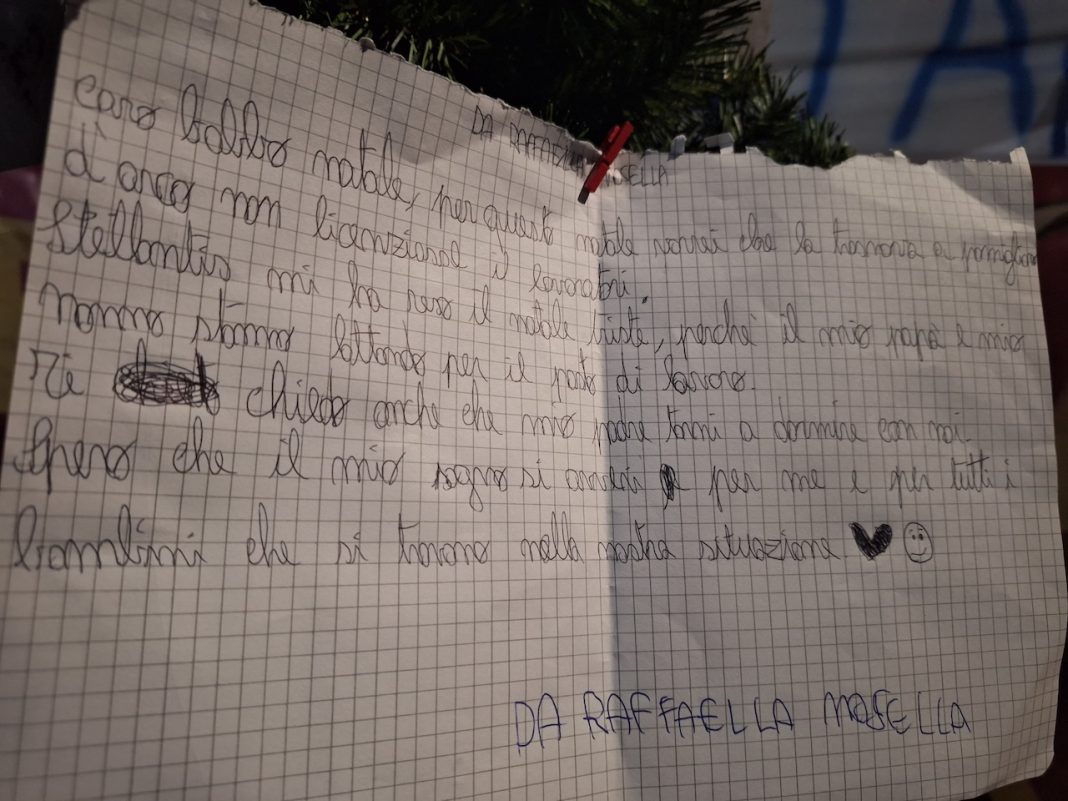 DA RAFFAELLA MOSELLA
caro babbo natale, per questo natale vorrei che la trasnova a pomigliano
d'arco non licenziasse i lavoratori.
Stellantis mi ha reso il natale triste, perché il mio papà e mio
nonno stanno lottando per il posto di lavoro.
Ti chiedo anche che mio padre torni a dormire con noi.
Spero che il mio sogno si avveri per me e per tutti i
bambini che si trovano nella nostra situazione
DA RAFFAELLA MOSELLA